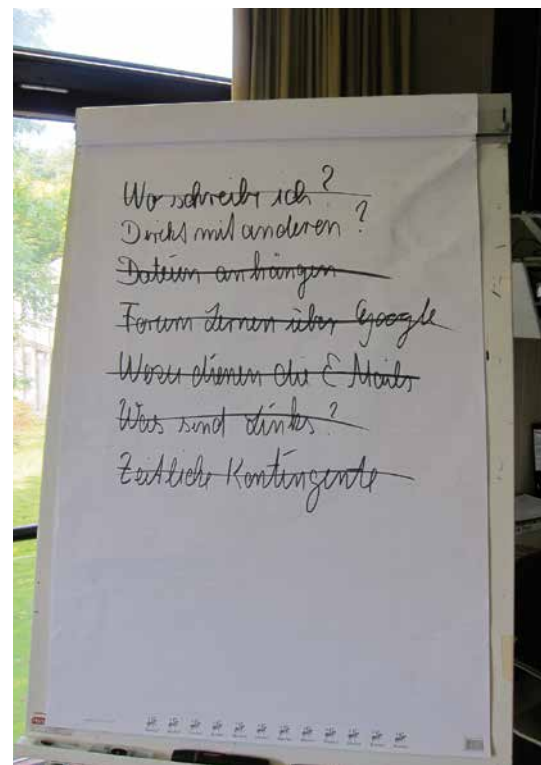 Wo schreibe ich?
Direkt mit anderen?
Dateien anhängen
Forum Lernen über Google
Wozu dienen die E Mails
Was sind Links?
Zeitliche Kontingente